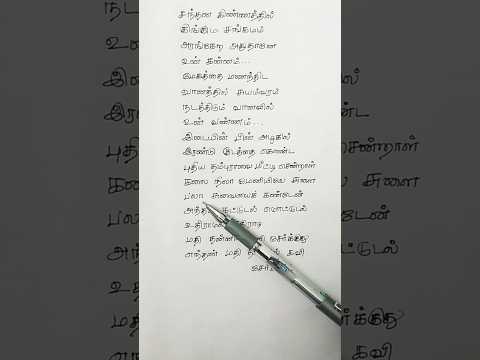 சந்தன கிண்ணத்தில்
குங்கும சங்கமம்
அரங்கேற அதுதானே
உன் கன்னம்...
மேகத்தை மணந்திட
வானத்தில் சுயம்வரம்
நடத்திடும் வானவில்
உன் வண்ணம்...
இடையின் பின் அழகில்
இரண்டு குடத்தை கொண்ட
புதிய தம்புராவை மீட்டி சென்றாள்
கலை நிலா மேனியிலே சுளை
பலா சுவையைக் கண்டேன்
அந்த கட்டுடல் மொட்டுடல்
உதிராமல்
மதி தன்னில் கவி சேர்க்குது
எந்தன் மதி கவி